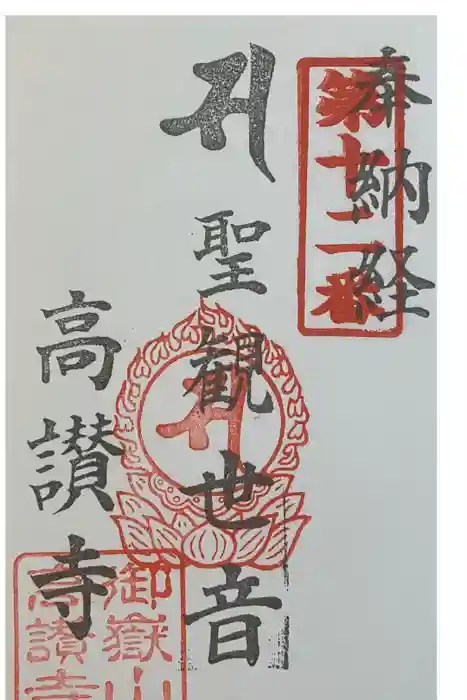 奉納経
第十二番
サ 聖観世音
高讃寺
御嶽山
高讃寺